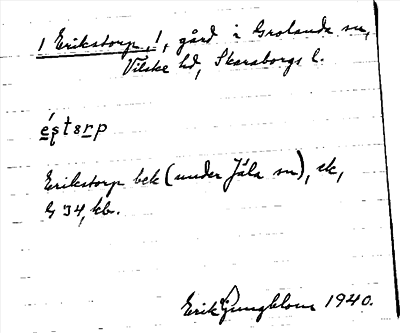 1 Erikstorp, 1, gård i Grolanda sn,
Vilske hd, Skaraborgs l.
éstsrp
Erikstorp bek (under Jäla sn), ek,
G 34, kb.
Erik Ljungblom 1940.